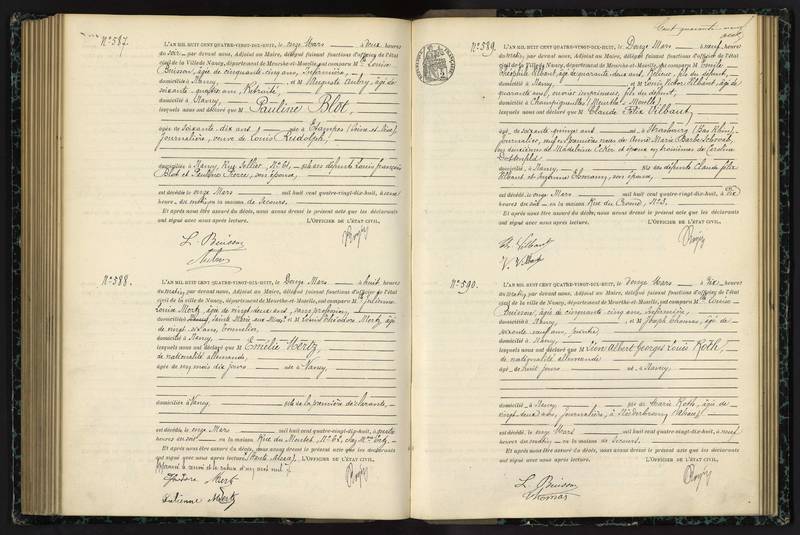 N° 587.
L'AN MIL HUIT CENT QUATRE-VINGT-DIX-HUIT, le onze Mars à deux heures
du soir par devant nous, Adjoint au Maire, délégué faisant fonctions d'officier de l'état
civil de la Ville de Nancy, département de Meurthe-et-Moselle, ont comparu M Louise
Buisson, âgée de cinquante-cinq ans, Infirmière,
domiciliée à Nancy, et M Auguste Aubry, âgé de
soixante-quatre ans, Retraité,
domicilié à Nancy,
lesquels nous ont déclaré que M Pauline Blot,
âgée de soixante dix ans, née à Étampes (Seine et Oise)
Journalière, veuve de Louis Rudolph,
domiciliée à Nancy, Rue Sellier, N° 61, fille des défunts Louis François
Blot et son épouse,
est décédée le onze Mars mil huit cent quatre-vingt-dix-huit, à onze
heures du matin en la maison de Secours.
Et après nous être assuré du décès, nous avons dressé le présent acte que les déclarants
ont signé avec nous après lecture. L'OFFICIER DE L'ÉTAT CIVIL,
L. Buisson
Aubry
N° 588.
L'AN MIL HUIT CENT QUATRE-VINGT-DIX-HUIT, le Douze Mars à huit heures
du matin, par devant nous, Adjoint au Maire, délégué faisant fonctions d'officier de l'état
civil de la ville de Nancy, département de Meurthe-et-Moselle, ont comparu M Julienne
Louise Mertz, âgée de vingt-deux ans, sans profession,
et M Louis Théodore Mertz, âgé
de vingt-six ans, tonnelier,
domicilié à Nancy,
lesquels nous ont déclaré que M Emélie Mertz,
de nationalité allemande,
âgée de un mois dix jours née à Nancy,
domiciliée à Nancy fille de la première déclarante,
est décédée le onze Mars mil huit cent quatre-vingt-dix-huit, à quatre
heures du soir en la maison Rue du Montet, N° 62,
Et après nous être assuré du décès, nous avons dressé le présent acte que les déclarants
ont signé avec nous après lecture. L'OFFICIER DE L'ÉTAT CIVIL,
Théodore Mertz
Julienne Mertz
Cent quarante-neuf
N° 589.
L'AN MIL HUIT CENT QUATRE-VINGT-DIX-HUIT, le Douze Mars à neuf heures
du matin, par devant nous, Adjoint au Maire, délégué faisant fonctions d'officier de l'état
civil de la Ville de Nancy, département de Meurthe-et-Moselle, ont comparu M
Vilbaut, âgé de quarante deux ans, Relieur, fils du défunt,
domicilié à Nancy, et M Louis Victor Vilbaut, âgé de
quarante ans, ouvrier imprimeur, fils du défunt,
domicilié à Champigneulles (Meurthe & Moselle),
lesquels nous ont déclaré que M Claude Félix Vilbaut,
âgé de soixante quinze ans né à Strasbourg (Bas Rhin),
Journalier, veuf en premières noces de Anne Marie
en deuxièmes de Madeleine et époux en troisièmes de Caroline
domicilié à Nancy, fils des défunts Claude Félix
Vilbaut et Suzanne son épouse,
est décédé le onze Mars mil huit cent quatre-vingt-dix-huit, à dix
heures du soir en la maison Rue du Crosne, N° 3.
Et après nous être assuré du décès, nous avons dressé le présent acte que les déclarants
ont signé avec nous après lecture. L'OFFICIER DE L'ÉTAT CIVIL,
Vilbaut
V. Vilbaut
N° 590.
L'AN MIL HUIT CENT QUATRE-VINGT-DIX-HUIT, le Douze Mars à dix heures
du matin, par devant nous, Adjoint au Maire, délégué faisant fonctions d'officier de l'état
civil de la ville de Nancy, département de Meurthe-et-Moselle, ont comparu M Louise
Buisson, âgée de cinquante-cinq ans, Infirmière,
domiciliée à Nancy, et M Joseph Thomas, âgé de
soixante neuf ans, peintre,
domicilié à Nancy,
lesquels nous ont déclaré que M Léon Albert Georges Louis Roth,
de nationalité allemande
âgé de huit jours né à Nancy,
domicilié à Nancy fils de Marie Roth, âgée de
vingt-deux ans, journalière, à Niederbronn (Alsace)
est décédé le onze Mars mil huit cent quatre-vingt-dix-huit, à neuf
heures du matin en la maison de Secours.
Et après nous être assuré du décès, nous avons dressé le présent acte que les déclarants
ont signé avec nous après lecture. L'OFFICIER DE L'ÉTAT CIVIL,
L. Buisson
Thomas